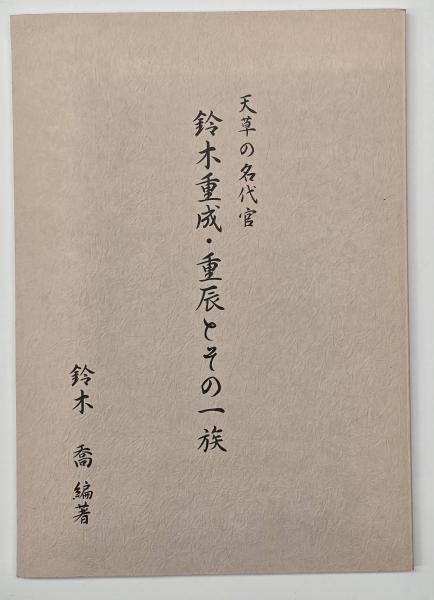 天草の名代官
鈴木重成・重辰とその一族
鈴木 喬 編著